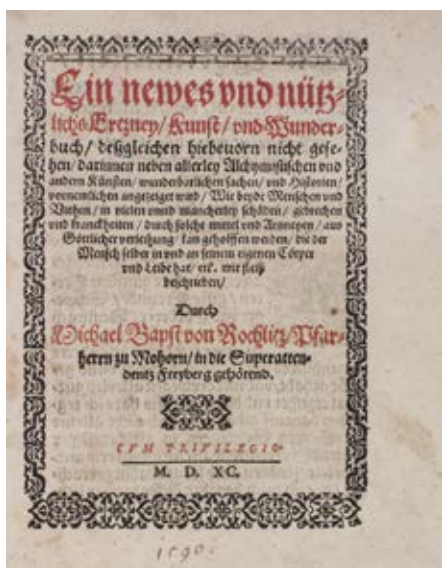 Ein newes vnd nütz-
lichs Ertzney/ Kunst/ vnd Wunder-
buch/ deßgleichen hiebeuorn nicht gese-
hen/ darinnen neben allerley Alchymistischen vnd
andern Künsten/ wunderbarlichen sachen/ vnd Historien/
vornemlichen angezeiget wird/ Wie beyde Menschen vnd
Viehen/ in vielen vnnd mancherley schäden/ gebrechen
vnd kranckheiten/ durch solche mittel vnd Artzneyen/ aus
Göttlicher verleihung/ kan geholffen werden/ die der
Mensch selber in vnd an seinem eigenen Cörper
vnd Leibe hat/ etc. mit fleiß
beschrieben/
Durch
Michael Bapst von Rochlitz/ Pfar-
herrn zu Mohorn/ in die Superatten-
dentz Freyberg gehörend.
CVM PRIVILEGIO
M. D. XC.
1590.